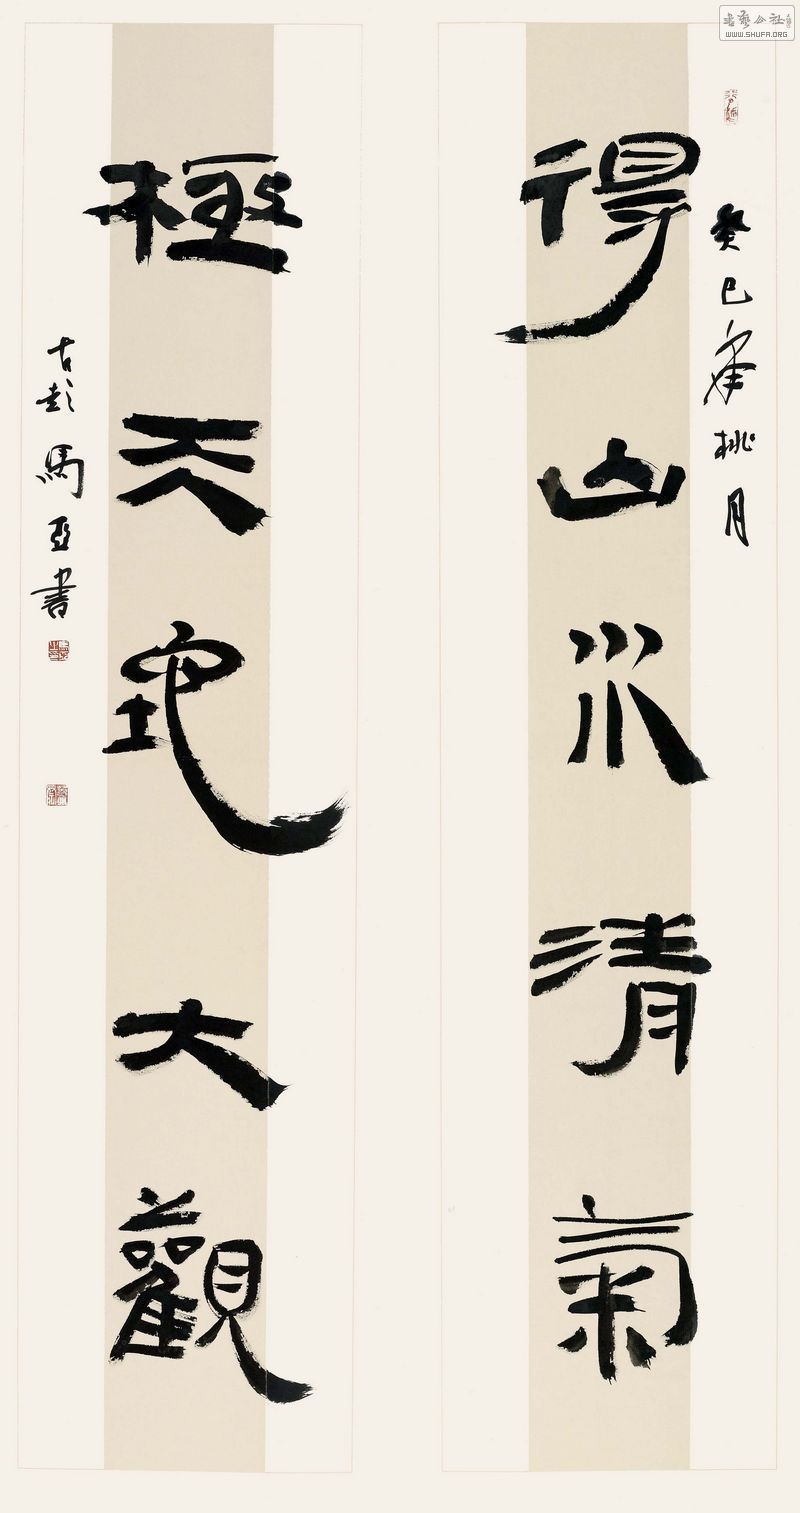 書藝公社
WWW.SHUFA.ORG
癸巳年桃月
得山水清氣
極天地大觀
古彭馬亞書